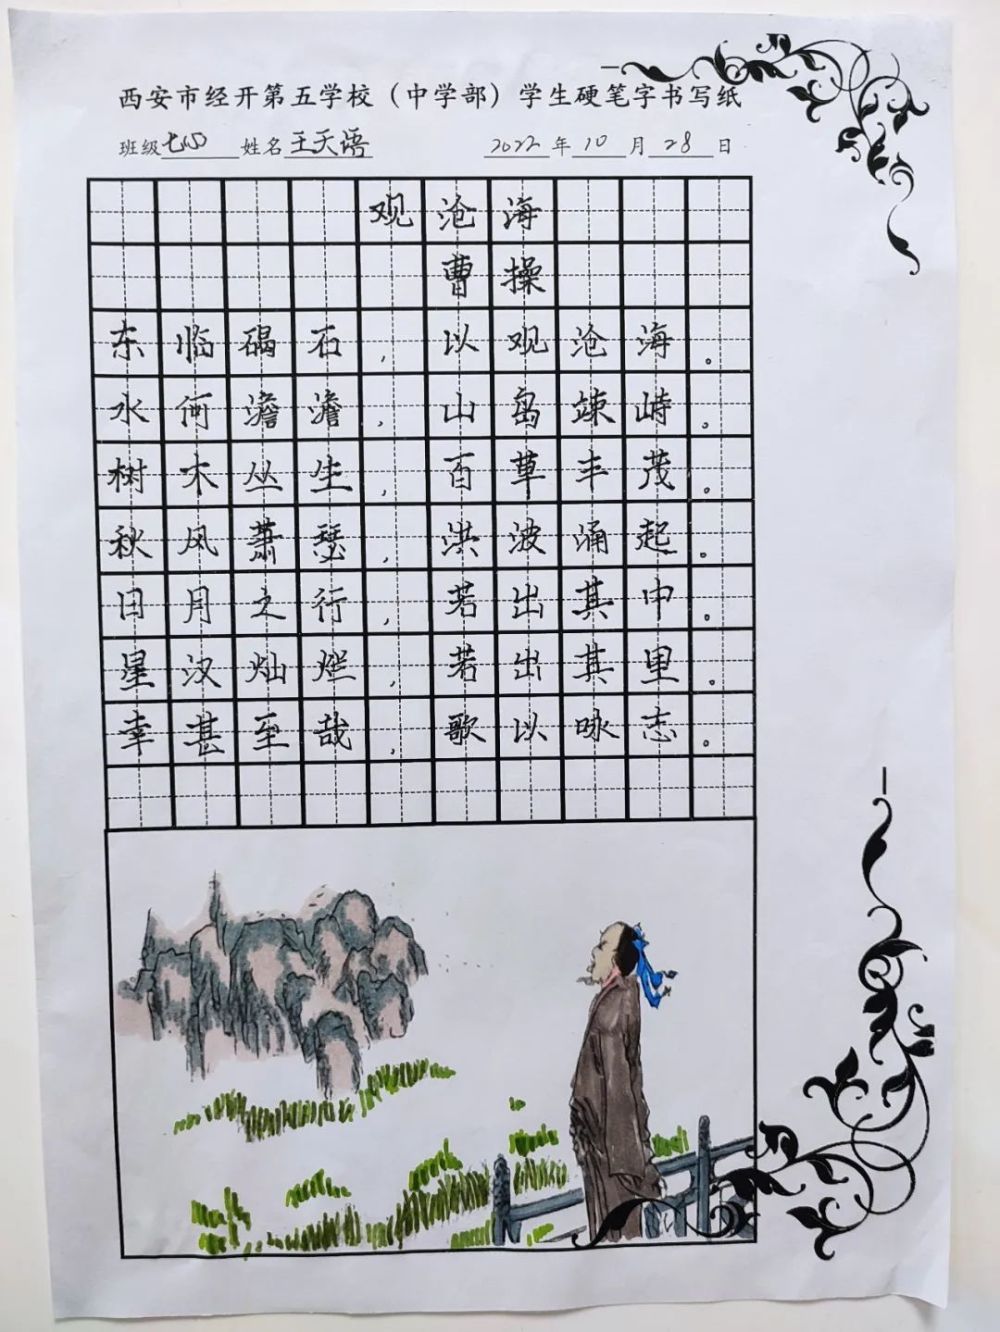 西安市经开第五学校（中学部）学生硬笔字书写纸
班级七(4) 姓名王天语 2022年10月28日
观沧海
曹操
东临碣石，以观沧海。
水何澹澹，山岛竦峙。
树木丛生，百草丰茂。
秋风萧瑟，洪波涌起。
日月之行，若出其中。
星汉灿烂，若出其里。
幸甚至哉，歌以咏志。